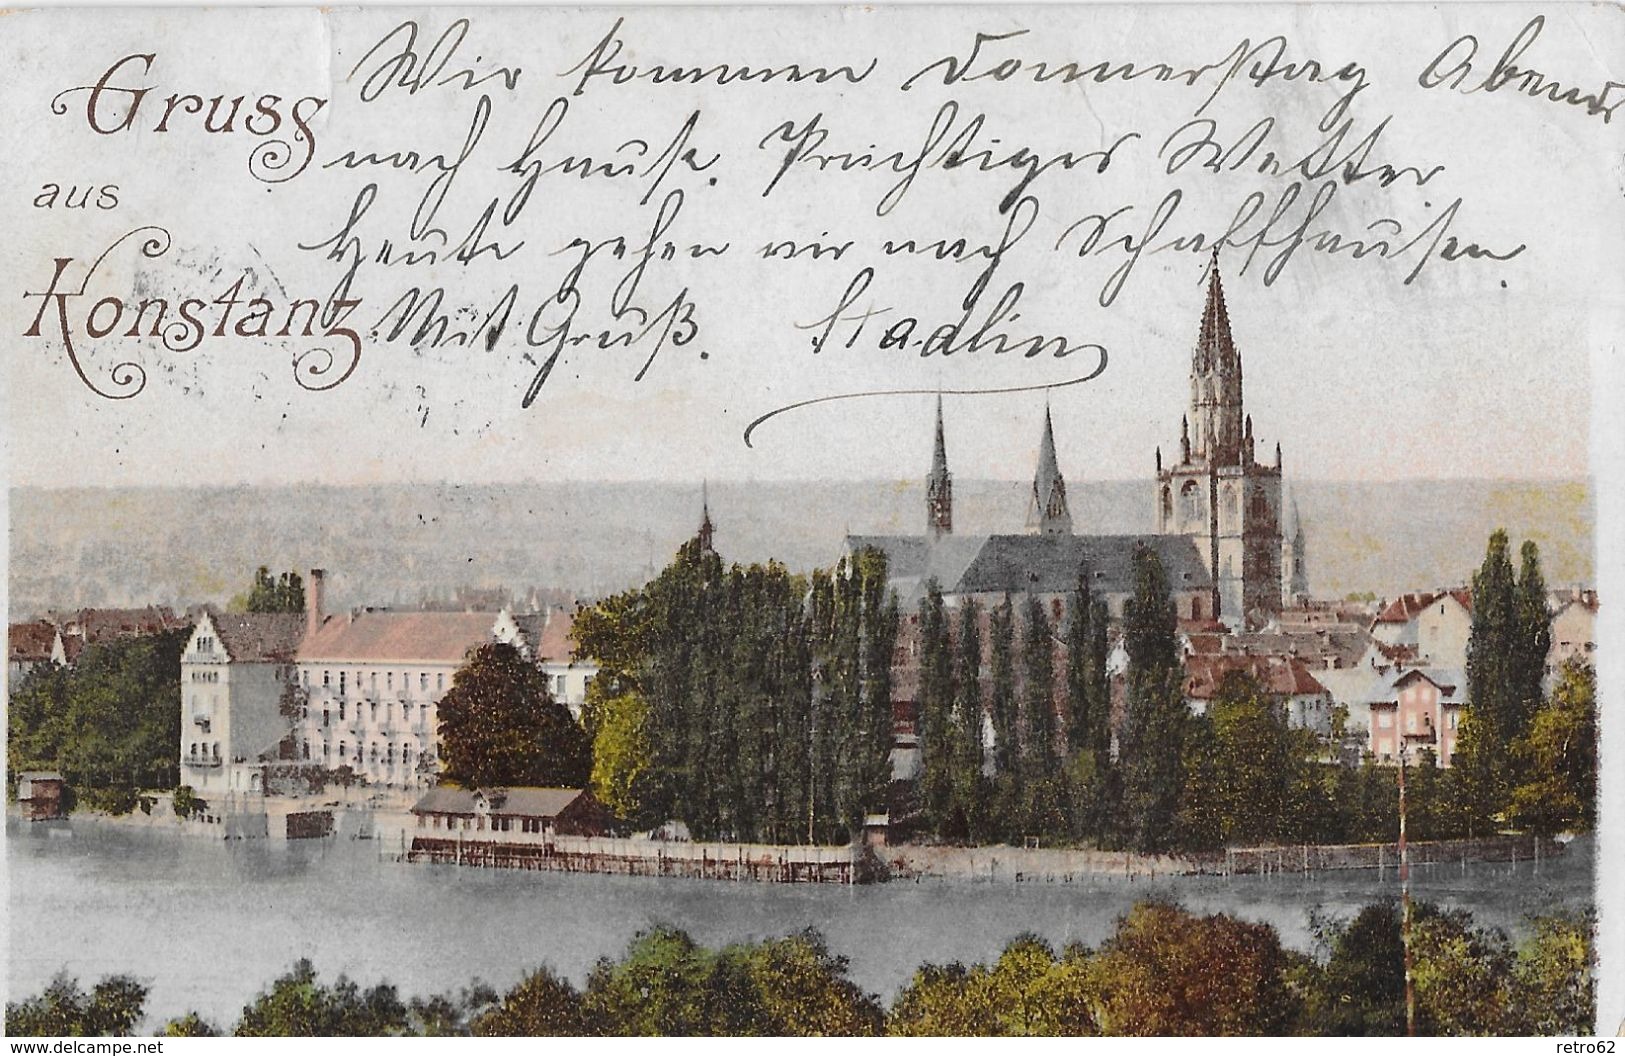 Gruss
aus
Konstanz.
Wir kommen Donnerstag Abends
nach Hause. Prächtiges Wetter
Heute gehen wir nach Schaffhausen.
Mit Gruß. Stadlin
www.delcampe.net
retro62